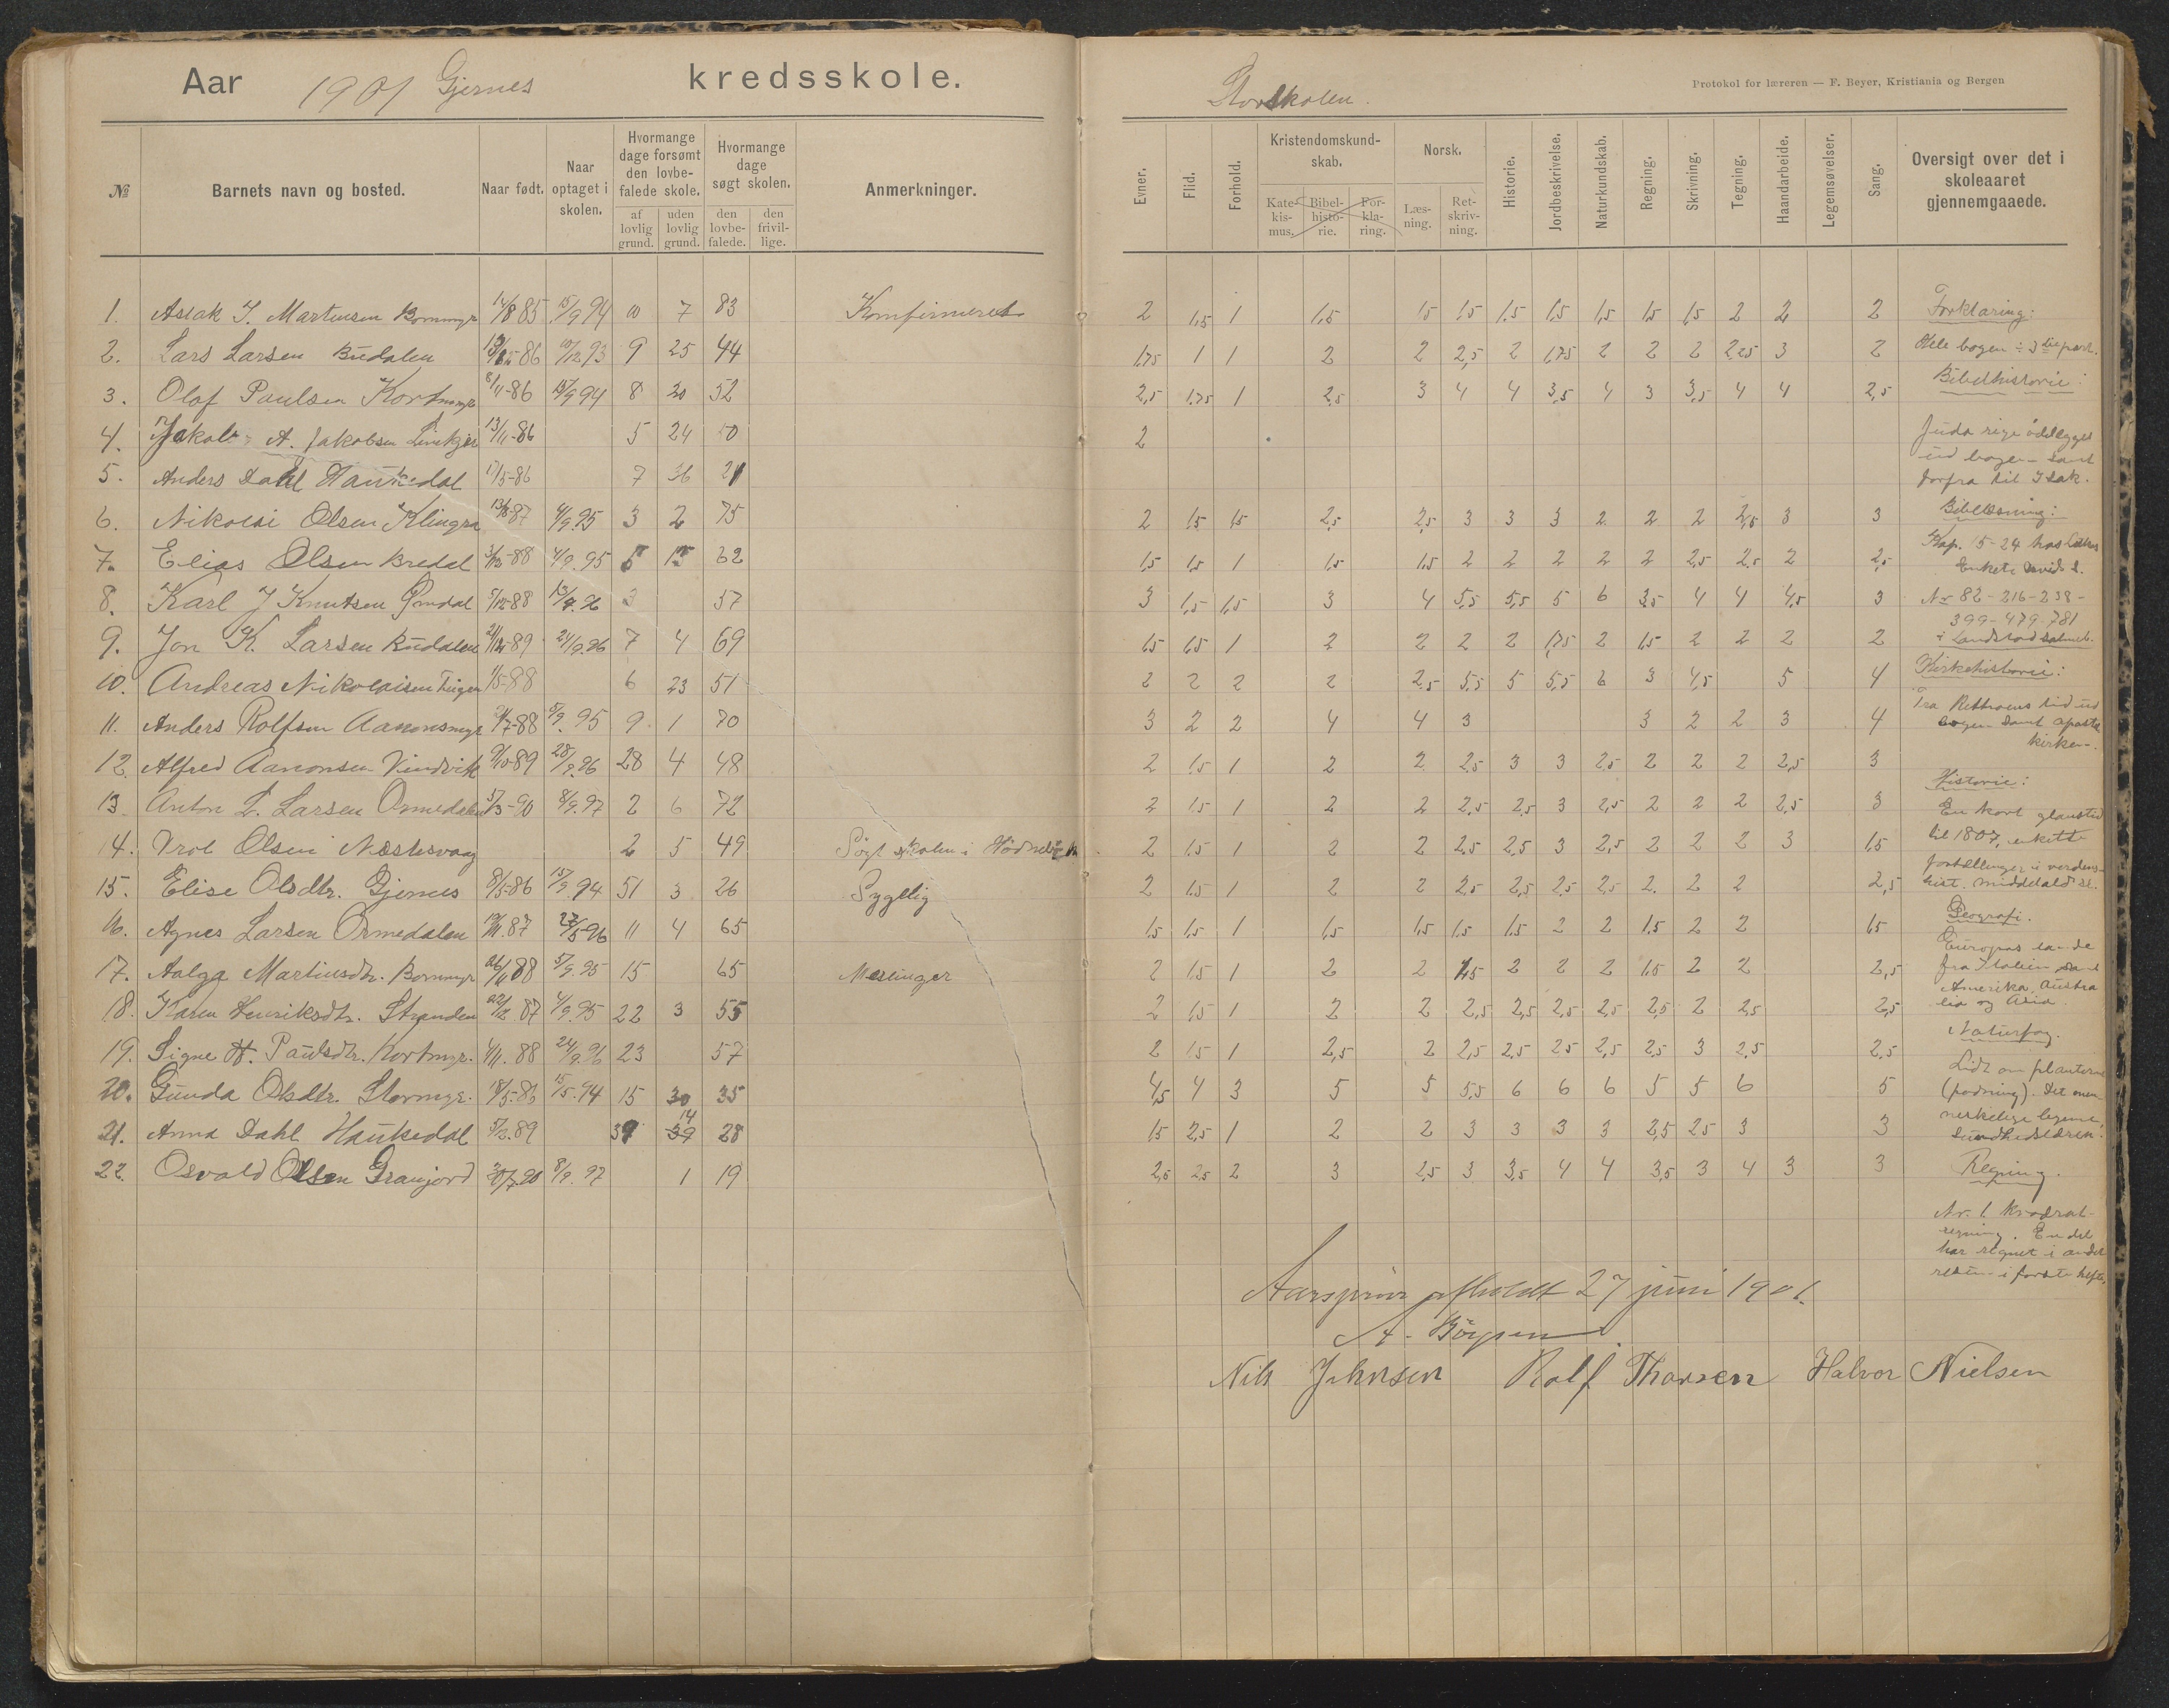 Aar 1901 Gjernes kredsskole.
№ Barnets navn og bosted. Naar født. Naar optaget i skolen. Hvormange dage forsømt den lovbefalede skole. af lovlig grund. uden lovlig grund. Hvormange dage søgt skolen. den lovbefalede. den frivillige. Anmerkninger.
1. Aslak J. Martinsen Bommyr 14/8 85 15/9 94 10 7 83 Konfirmeret
2. Lars Larsen Budalen 86 10/12 93 9 25 44
3. Olaf Paulsen Kortmyr 8/11-86 15/9 94 8 20 52
4. Jakob A. Jakobsen 13/11-86 5 24 50
5. Anders Dahl Haukedal 17/5-86 7 36 21
6. Nikolai Olsen Klingra 87 4/9.95 3 2 75
7. Elias Olsen Bredal 88 4/9.95 5 62
8. Karl J Knutsen 88 96 3 57
9. Jon K. Larsen Budalen 89 24/9.96 7 4 69
10. Andreas Nikolaisen 1/5-88 6 23 51
11. Anders Rolfsen Aanonsmyr 7-88 5/9.95 9 1 70
12. Alfred Aanonsen Vindvik 9/10-89 28/9.96 28 4 48
13 Anton L. Larsen Ormedalen 3-90 8/9.97 2 6 72
14. Olsen Næstesvaag 2 5 49 Søgt skolen i
15. Elise Olsdtr. Gjernes 8/5-86 15/9.94 51 3 26 Sygelig
16. Agnes Larsen Ormedalen 87 27/5-96 11 4 65
17. Aalga Martinsdtr. Bommyr 26/11 88 5/9.95 15 65 Meslinger
18. Karen Henriksdtr. Stranden 87 4/9.95 22 3 55
19. Signe Paulsdtr. Kortmyr. 4/11.88 24/9.96 23 57
20. Gunda Olsdtr. Stormyr. 18/5.86 15/5.94 15 30 35
21. Anna Dahl Haukedal 5/2.89 39 39 14 28
22. Osvald Olsen Granjord 20/7.90 8/9.97 1 19
Storskolen.
Protokol for læreren — F. Beyer, Kristiania og Bergen
Evner. Flid. Forhold. Kristendomskundskab. Katekismus. Bibelhistorie. Forklaring. Norsk. Læsning. Retskrivning. Historie. Jordbeskrivelse. Naturkundskab. Regning. Skrivning. Tegning. Haandarbeide. Legemsøvelser. Sang. Oversigt over det i skoleaaret gjennemgaaede.
2 1,5 1 1,5 1,5 1,5 1,5 1,5 1,5 1,5 1,5 2 2 2 Forklaring:
1,75 1 1 2 2 2,5 2 1,75 2 2 2 2,25 3 2 Hele bogen ÷ 3die part.
2,5 1,75 1 2,5 3 4 4 3,5 4 3 3,5 4 4 2,5 Bibelhistorie:
2 Juda rige ødelægges
ud bogen samt
derfra til Isak.
2 1,5 1,5 2,5 2,5 3 3 3 2 2 2 2,5 3 3 Bibellæsning:
1,5 1,5 1 1,5 1,5 2 2 2 2 2 2,5 2,5 2 2,5 Kap. 15-24 hos
3 1,5 1,5 3 4 5,5 5,5 5 6 3,5 4 4 4,5 3 Nr 82-216-238-
399-479-781
1,5 1,5 1 2 2 2 2 1,75 2 1,5 2 2 2 2 i Landstads salmeb.
2 2 2 2 2,5 5,5 5 5,5 6 3 4,5 5 4 Kirkehistorie:
3 2 2 4 4 3 3 2 2 3 4 Fra tid ud
bogen samt
kirken.
2 1,5 1 2 2 2,5 3 3 2,5 2 2 2 2,5 3 Historie:
2 1,5 1 2 2 2,5 2,5 3 2,5 2 2 2 2,5 3 En kort
2 1,5 1 2 2 2,5 2,5 3 2,5 2 2 2 3 1,5 til 1807, enkelte
fortællinger i verdens-
2 1,5 1 2 2 2,5 2,5 2,5 2,5 2 2 2 2,5 hist. middelald
1,5 1,5 1 1,5 1,5 1,5 1,5 2 2 1,5 2 2 1,5 Geografi.
Europas lande
2 1,5 1 2 2 1,5 2 2 2 1,5 2 2 2,5 fra Italien samt
Amerika, Austra
2 1,5 1 2 2 2,5 2,5 2,5 2,5 2,5 2 2,5 2,5 lia og Asia.
2 1,5 1 2,5 2 2,5 2,5 2,5 2,5 2,5 3 2,5 2,5 Naturfag.
Lidt om planterne
4,5 4 3 5 5 5,5 6 6 6 5 5 6 5 (podning). Det men-
neskelige legeme,
1,5 2,5 1 2 2 3 3 3 3 2,5 2,5 3 3 sundhedslæren.
2,5 2,5 2 3 2,5 3 3,5 4 4 3,5 3 4 3 3 Regning.
Nr. 1 kvadrat-
regning. En del
har regnet i andet
resten i første hefte.
Aarsprøve afholdt 27 juni 1901.
A.
Nils Johnsen Rolf Thorsen Halvor Nielsen